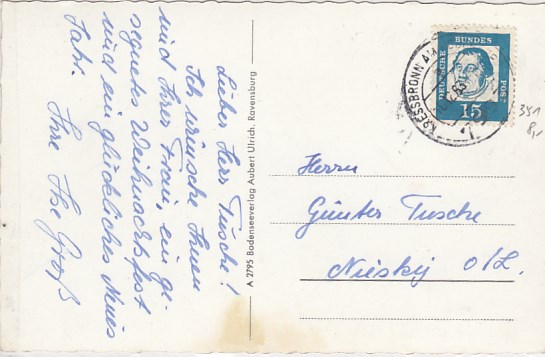 Lieber Herr Tusche!
Ich wünsche Ihnen
und Ihrer Frau, ein ge-
segnetes Weihnachtsfest
und ein glückliches Neues
Jahr.
Ihre Ilse Groß
A 2795 Bodenseeverlag Aubert Ulrich, Ravensburg
KRESSBRONN AM
DEUTSCHE
BUNDES
POST
15
351
8,-
Herrn
Günter Tusche
Niesky O/L.